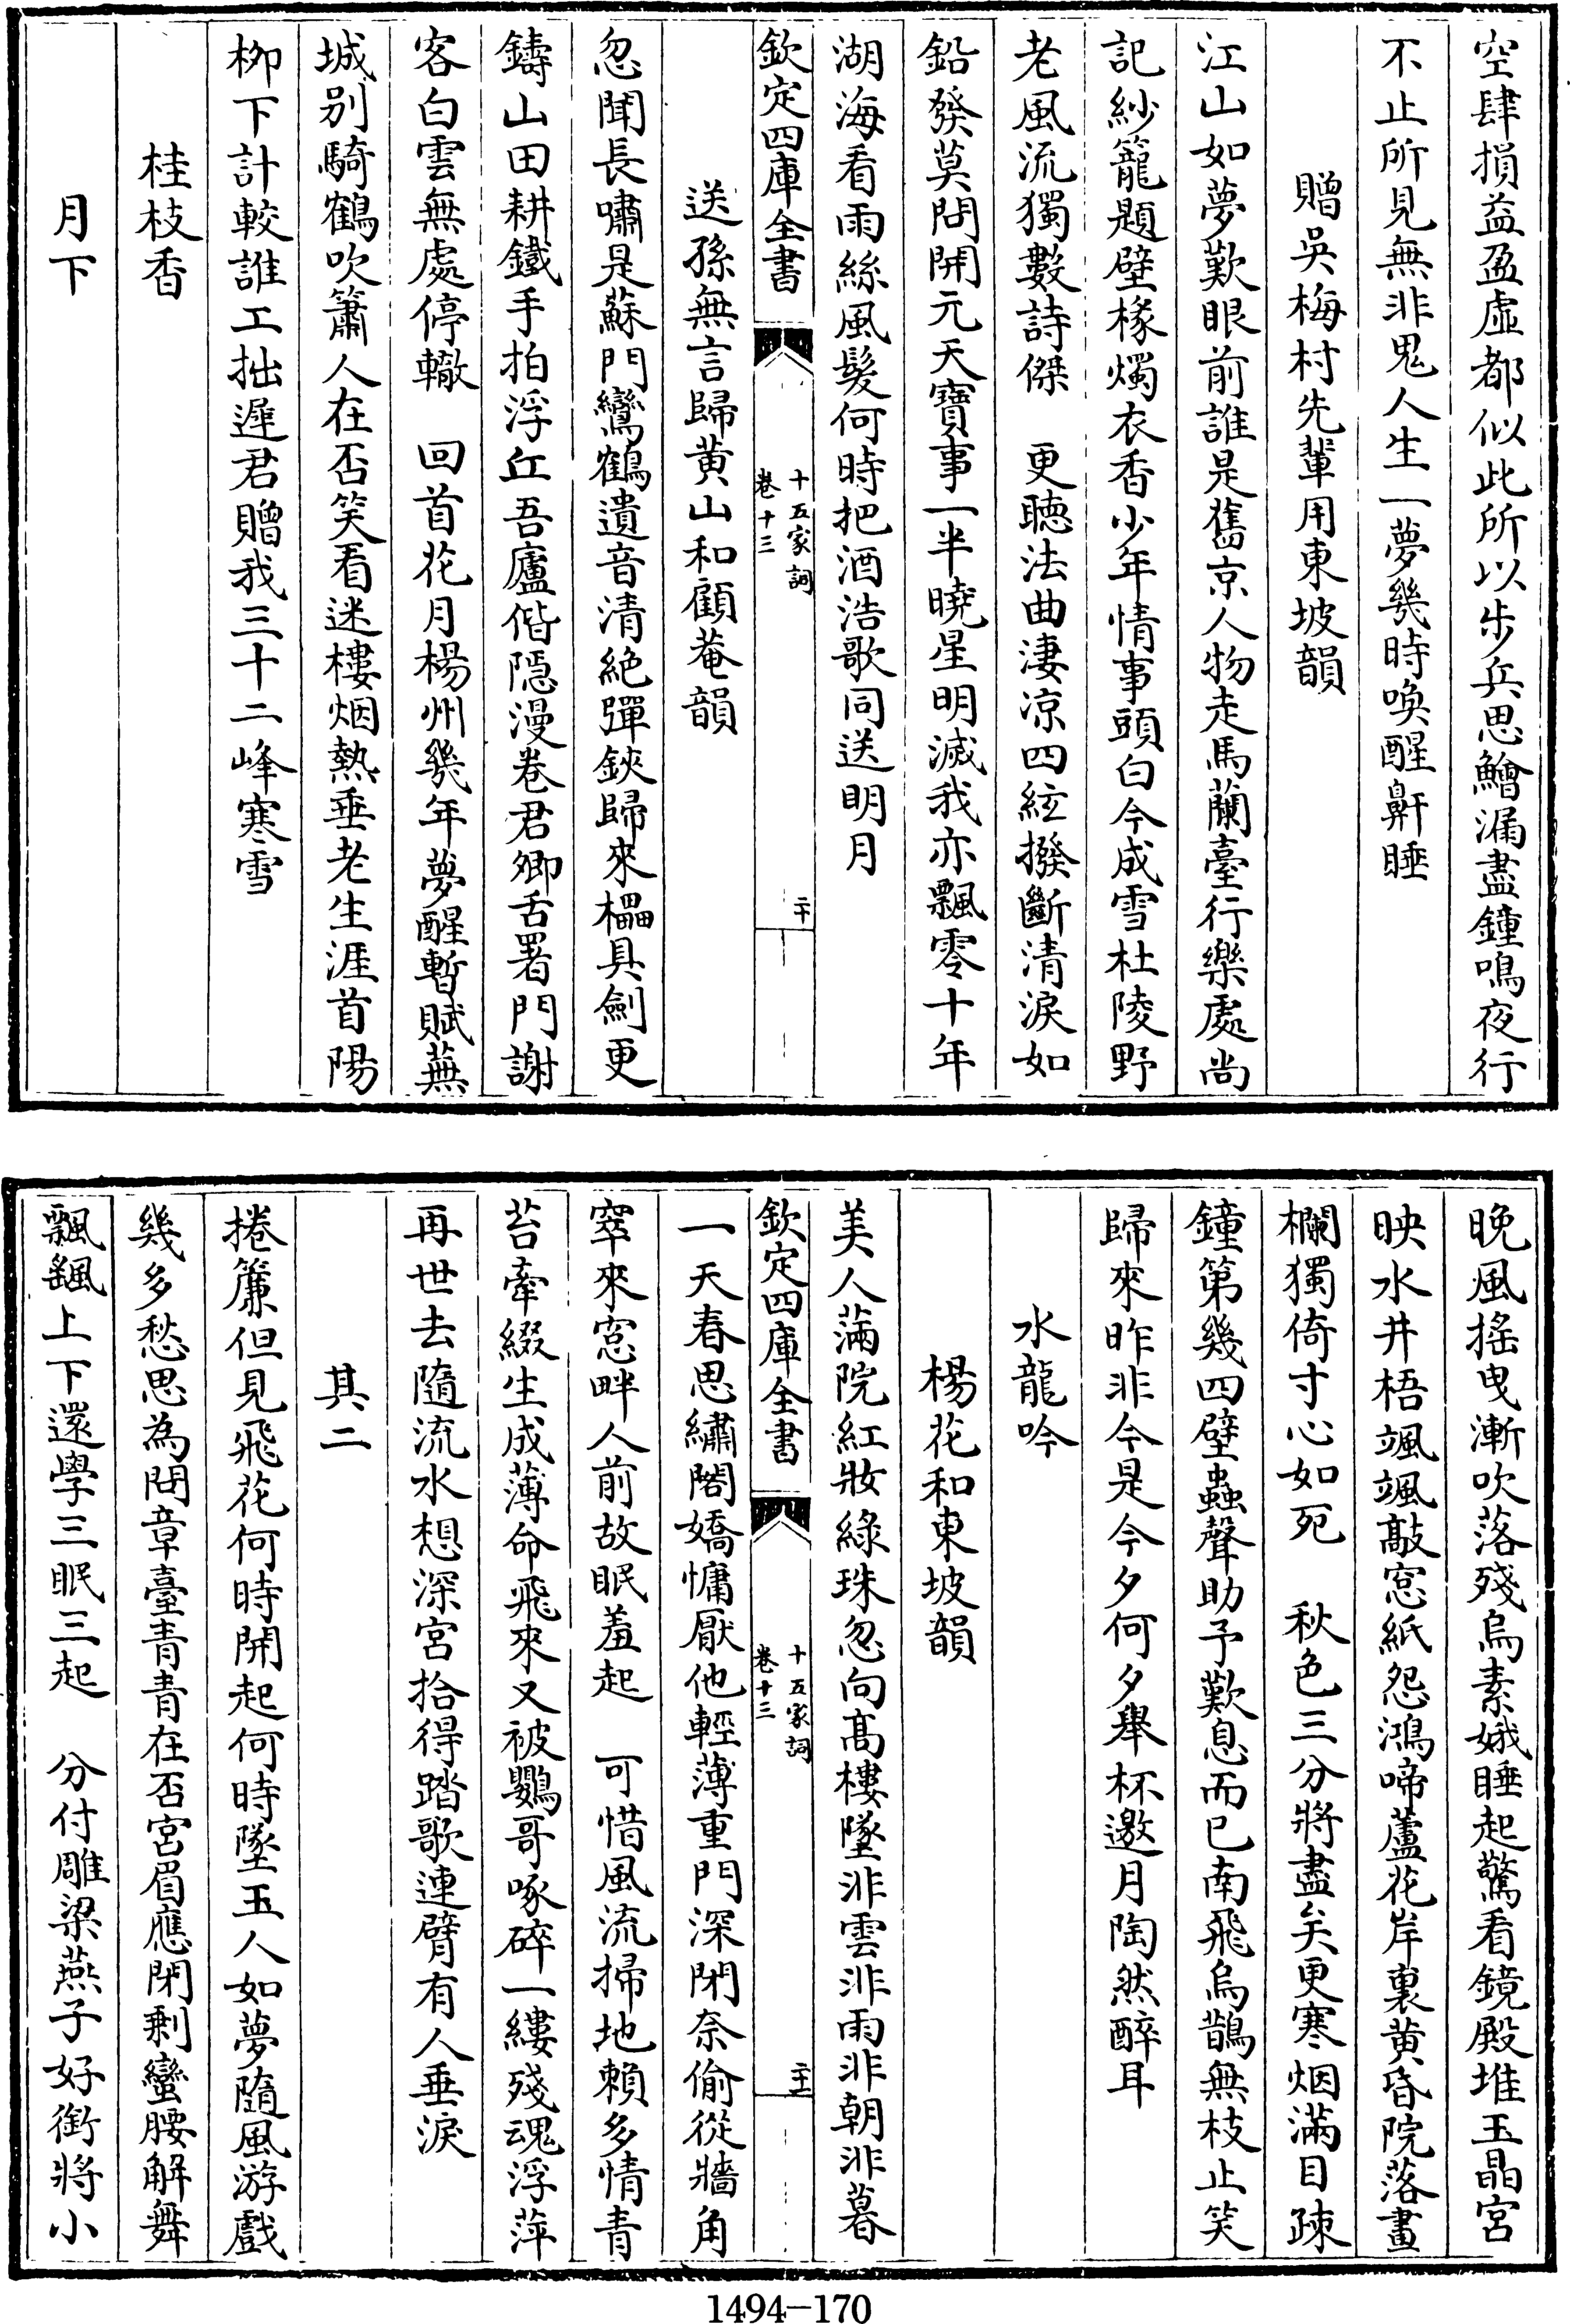 空肆損益盈虛都似此所以步兵思鱠漏盡鐘鳴夜行
不止所見無非鬼人生一夢幾時喚醒鼾睡
贈吳梅村先輩用東坡韻
江山如夢歎眼前誰是舊京人物走馬蘭臺行樂處尚
記紗籠題壁椽燭衣香少年情事頭白今成雪杜陵野
老風流獨數詩傑　更聽法曲淒涼四絃撥斷清淚如
鉛發莫問開元天寶事一半曉星明滅我亦飄零十年
湖海看雨絲風髮何時把酒浩歌同送明月
欽定四庫全書　十五家詞　卷十三　二十
送孫無言歸黃山和顧菴韻
忽聞長嘯是蘇門鸞鶴遺音清絕彈鋏歸來櫑具劍更
鑄山田耕鐵手拍浮丘吾廬偕隱漫卷君卿舌署門謝
客白雲無處停轍　回首花月楊州幾年夢醒暫賦蕪
城別騎鶴吹簫人在否笑看迷樓烟熱垂老生涯首陽
栁下計較誰工拙遲君贈我三十二峰寒雪
桂枝香
月下
晚風搖曳漸吹落殘烏素娥睡起驚看鏡殿堆玉晶宮
映水井梧颯颯敲窓紙怨鴻啼蘆花岸裏黃昏院落畫
欄獨倚寸心如死　秋色三分將盡矣更寒烟滿目疎
鐘第幾四壁蟲聲助予歎息而已南飛烏鵲無枝止笑
歸來昨非今是今夕何夕舉杯邀月陶然醉耳
水龍吟
楊花和東坡韻
美人滿院紅妝綠珠忽向髙樓墜非雲非雨非朝非暮
欽定四庫全書　十五家詞　卷十三　二十一
一天春思繡閣嬌慵厭他輕薄重門深閉奈偷從牆角
窣來窓畔人前故眠羞起　可惜風流掃地賴多情青
苔牽綴生成薄命飛來又被鸚哥啄碎一縷殘魂浮萍
再世去隨流水想深宮拾得踏歌連臂有人垂淚
其二
捲簾但見飛花何時開起何時墜玉人如夢隨風游戲
幾多愁思為問章臺青青在否宮眉應閉剩蠻腰解舞
飄颻上下還學三眠三起　分付雕梁燕子好銜將小
1494—170